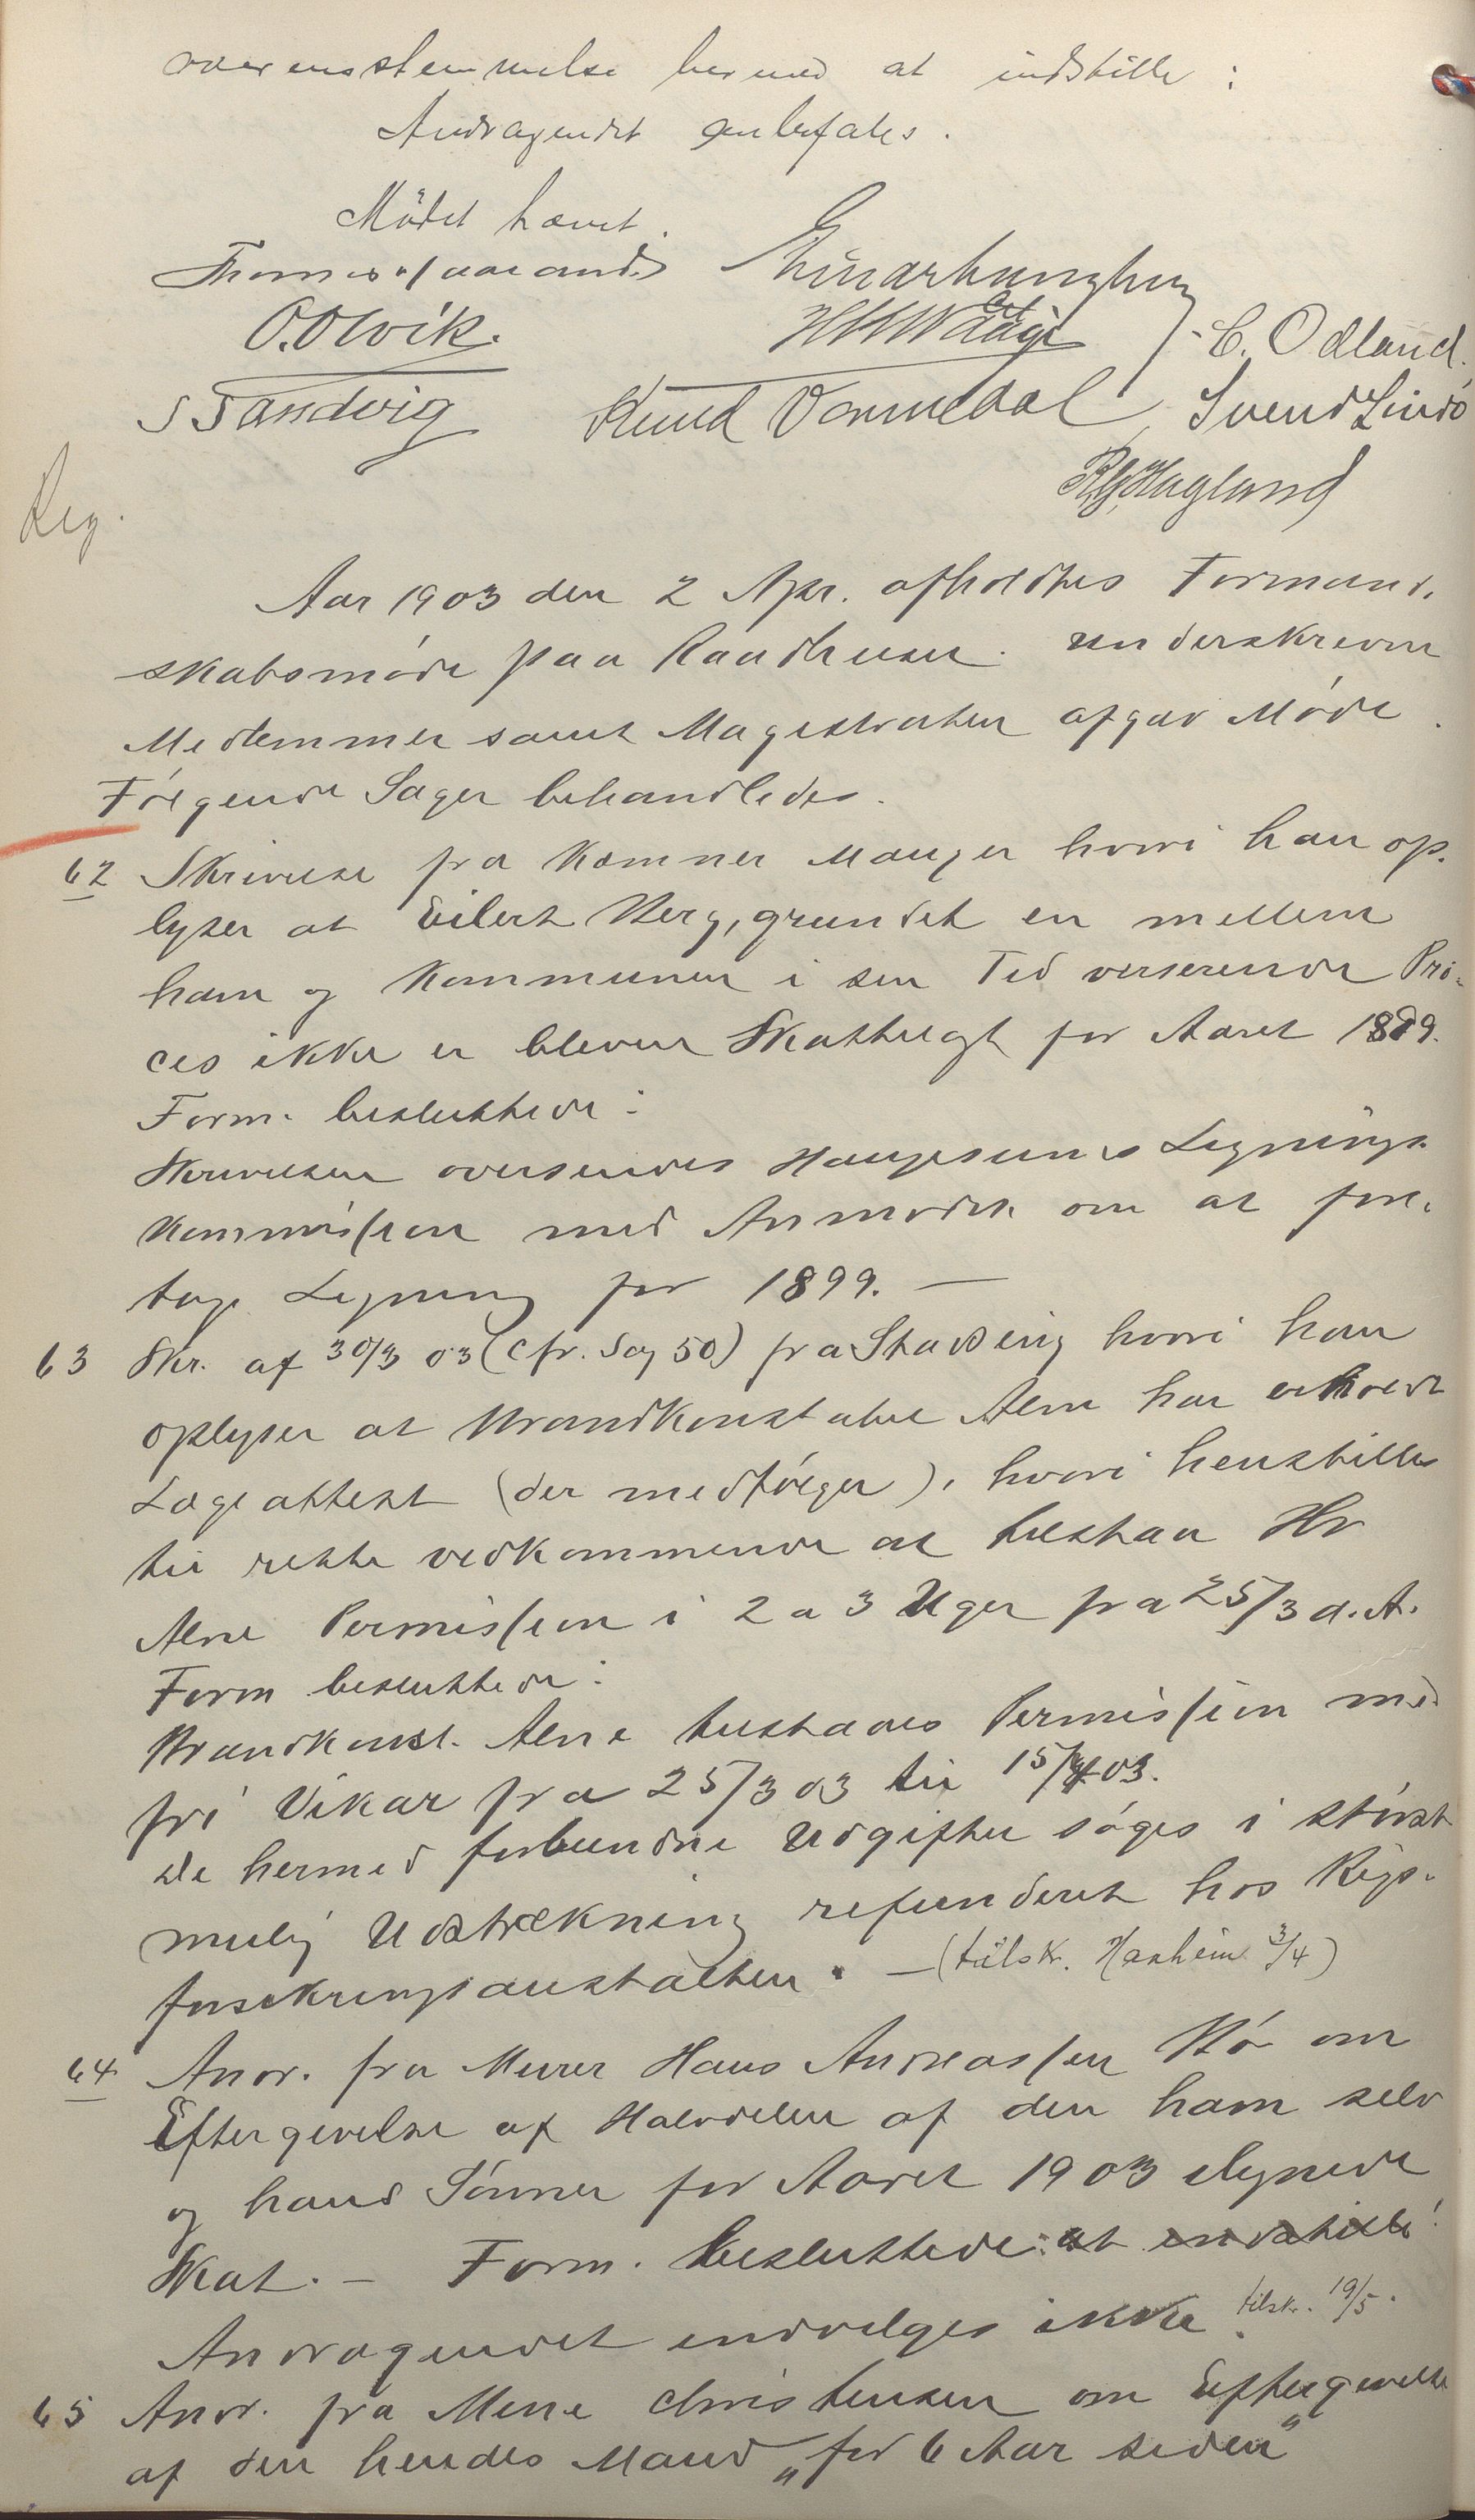 overensstemmelse hermed at indstille:
Andragendet anbefales.
Mödet hævet.
O. Olvik.
C. Odland.
S Sandvig
Knud Vormedal
Svend Lindö
Hagland
Reg.
Aar 1903 den 2 Apr. afholdtes Formand-
skabsmøde paa Raadhuset. Underskrevne
Medlemmer samt Magistraten afgav Møde.
Følgende Sager behandledes.
62 Skrivelse fra Kæmner Mauger hvori han op-
lyser at Eilert Berg, grundet en mellem
ham og Kommunen i sin Tid verserende Pro-
ces ikke er bleven Skattelagt for Aaret 1899.
Form. besluttede:
Skrivelsen oversendes Haugesunds Lignings-
kommission med Anmodn. om at fore-
tage Ligning for 1899. —
63 Skr. af 30/3 03 (cfr. Sag 50) fra Stadsing hvori han
oplyser at Brandkonstabel Alne har erholdt
Lægeattest (der medfølger), hvori henstilles
til rette vedkommende at tilstaa Hr
Alne Permission i 2 a 3 Uger fra 25/3 d. A.
Form besluttede:
Brandkonst. Alne tilstaaes Permission med
fri Vikar fra 25/3 03 til 15/4 03.
De hermed forbundne Udgifter søges i størst
mulig Udstrækning refunderet hos Rigs-
forsikringsanstalten. — (tilsk. Hasheim 3/4)
64 Andr. fra Murer Hans Andreassen Bø om
Eftergivelse af Halvdelen af den ham selv
og hans Sønner for Aaret 1903 ilignede
Skat. — Form. besluttede: at indstille:
Andragendet indvilges ikke. tilsk. 19/5.
65 Andr. fra Mene Christensen om Eftergivelse
af den hendes Mand „for 6 Aar siden"